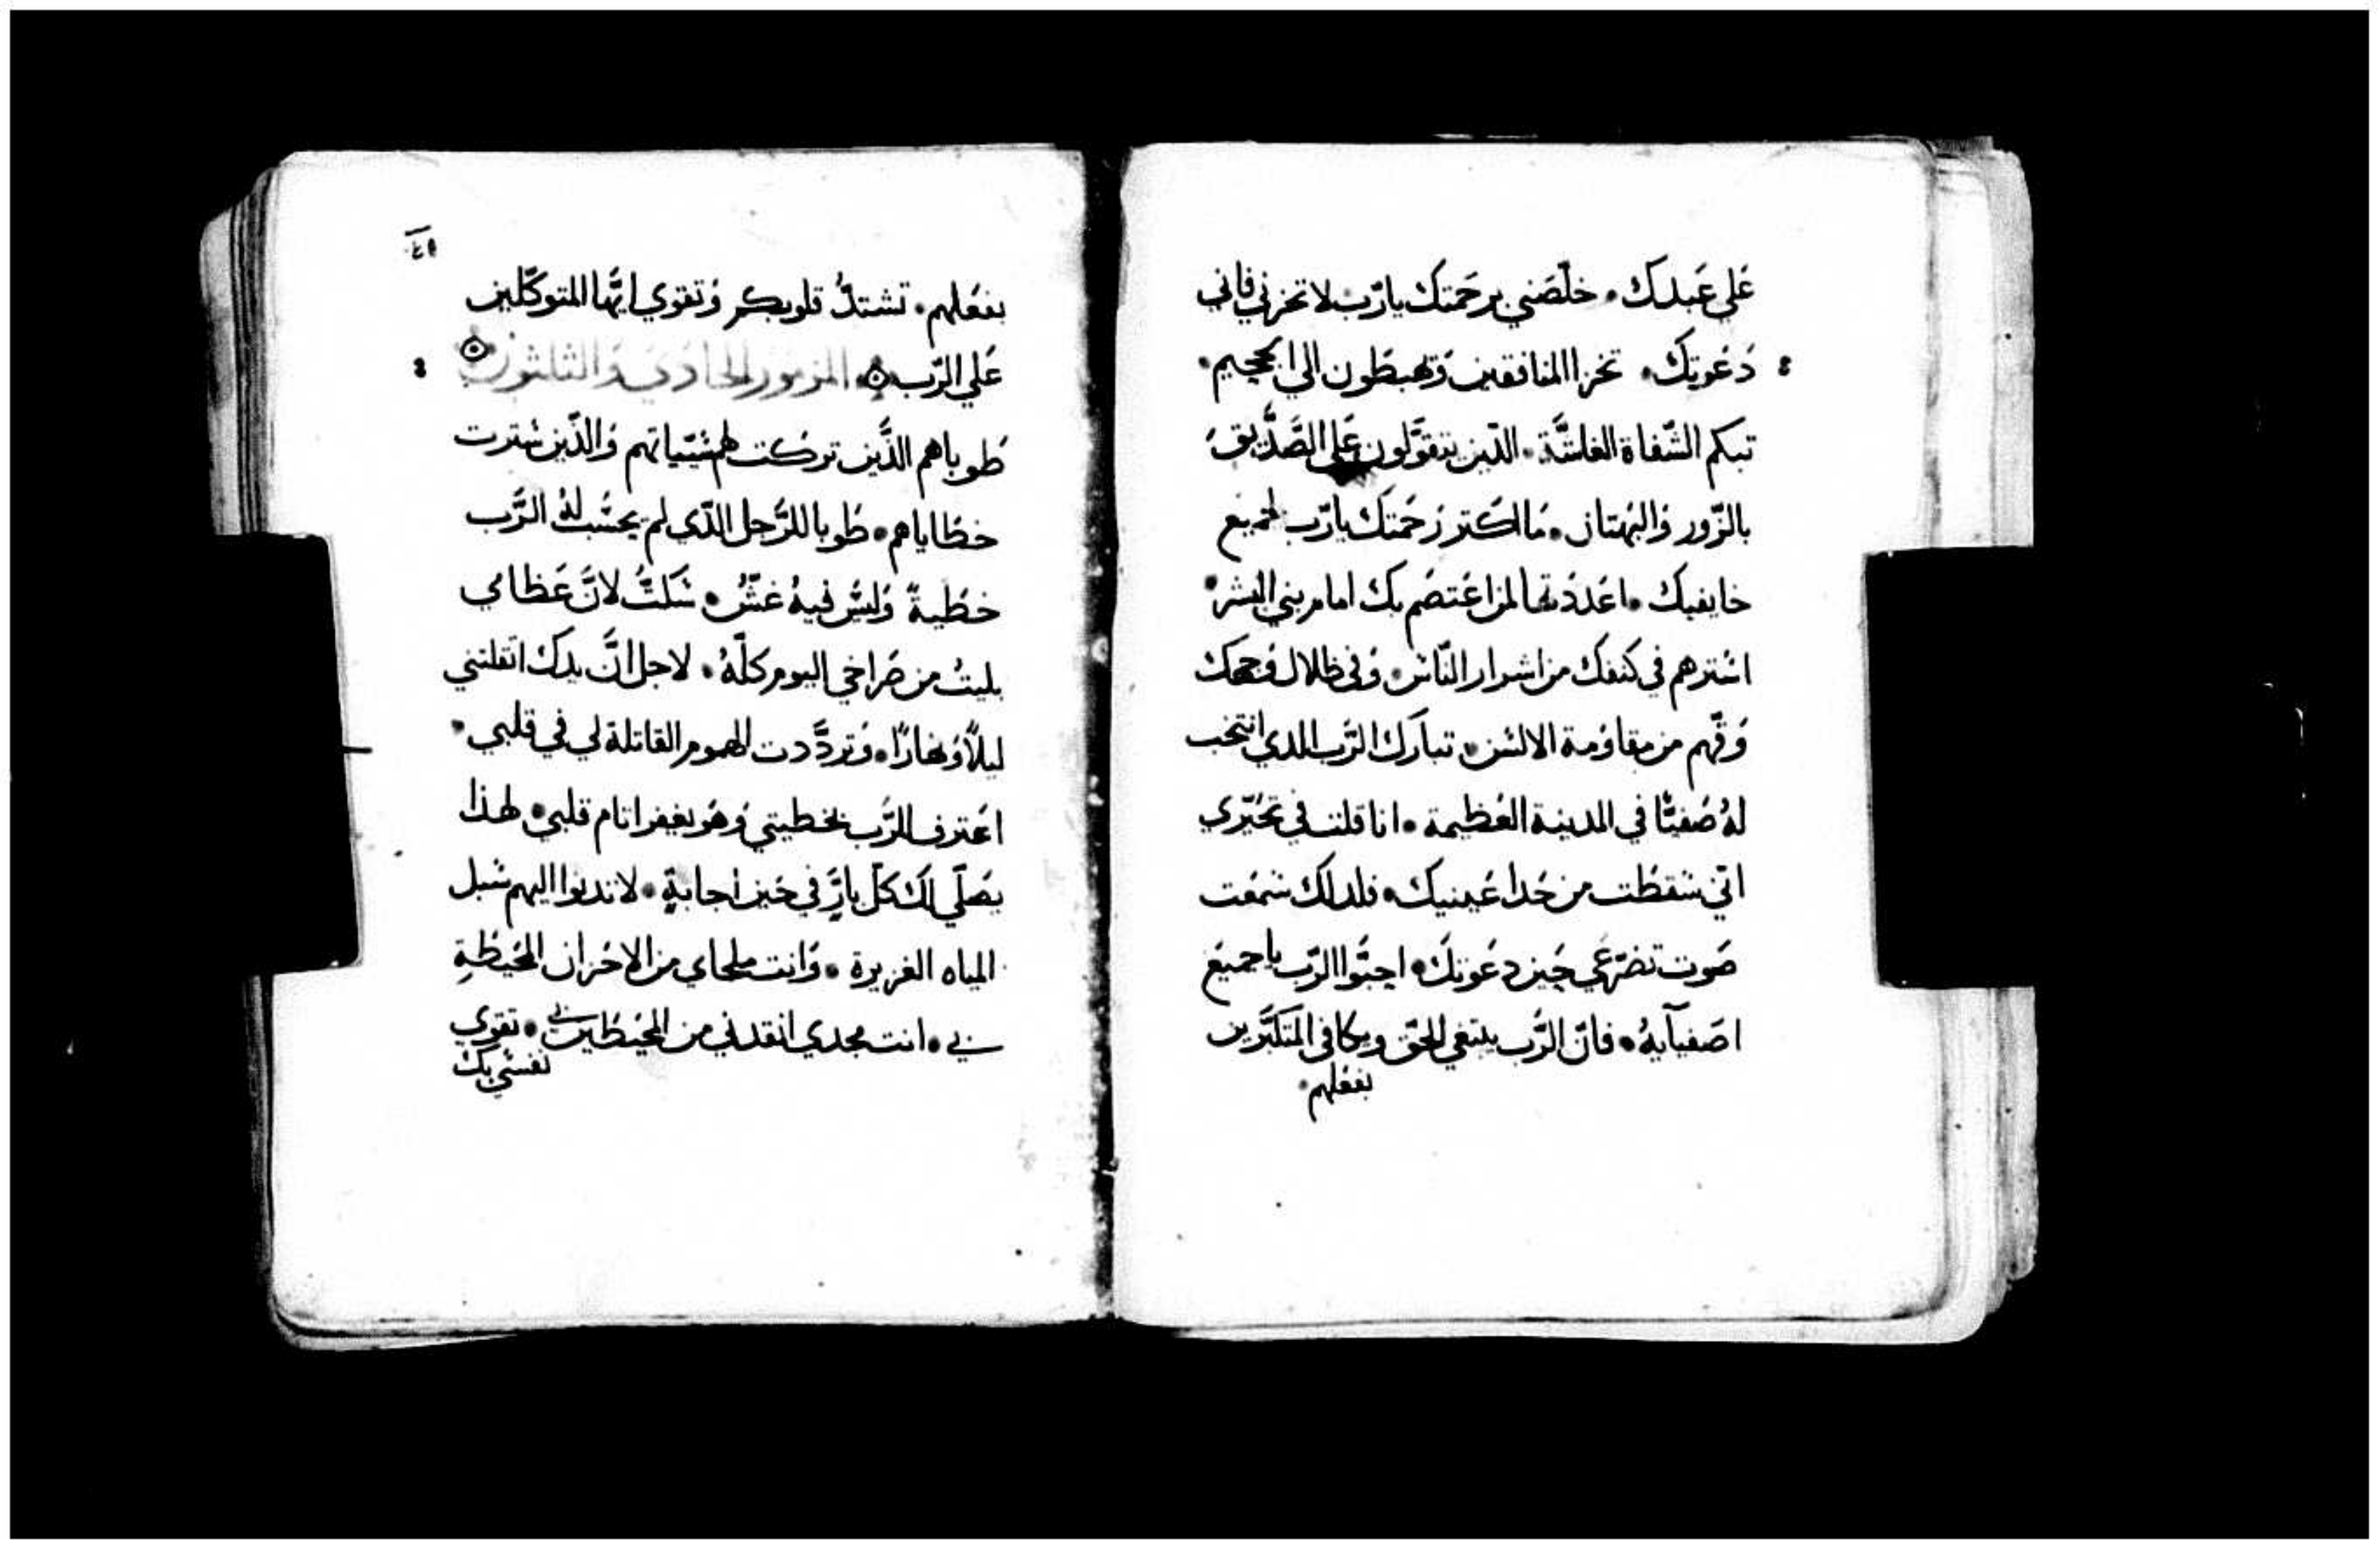 عَلي عَبدكَ • خلّصَني برحَمتكَ يارّب لا تخزني فاني
دَعَوتكَ • تخزا المنافقين وَتهبطون الي الجحيم •
تبكم الشّفاة الغاشَّة • الذّين يتقوَّلون عَلي الصَّدّيق
بالزّور وَالبُهتان • مَا اكتر رَحمَتكَ يارّب لجميع
خايفيك • اعَددَتها لمن اعَتصَم بكَ امام بني البشر •
استرهم في كنفك من اشرار النّاس • وَفي ظلال وَجهك
وَقّهم من مقاوَمة الالسن • تباَرك الرّب الدي انتخب
لهُ صَفيًّا في المدينة العَظيمة • انا قلت في تحيّري
انّي سَقطَت من حَدا عَينيك • فلدلك سَمعَت
صَوت تضرّعَي حَين دعَوتكَ • احبَّوا الرّب ياجميعَ
اصَفيآيهُ • فانّ الرَّب يبتغي الحَق ويكافي المتكَبَّرين
بفعَلهم •
٤٥
بفعَلهم • تشتدُّ قلوبكم وَتقوي ايَّها المتوكّلين
عَلي الرّب • المزمور الحادي وَالثلثون
طوباهم الذَّين تركت لهم سَيّياتهم وَالذّين سَترت
خطاياهم • طوبا للرَّجل الذّي لم يحسَب لهُ الرَّب
خطَيةً وَليسَ فيهُ غشٌّ • سَكتُّ لانَّ عَظامي
بليتُ من صَراخي اليوم كلّهُ • لاجل انَّ يدكَ اتقلتني
ليلاً وَنهارًا • وَتردَّدت الهموم القاتلة لي في قلبي •
اعَترف للرَّب بخطيتي وَهَو يغفر اتام قلبي • لهذا
يصَلّي لكَ كلّ بارَّ في حَين اجابةٍ • لا تدنوا اليهم سَبل
المياه الغزيرة • وَانت ملجاي من الاحَزان المحَيطَةِ
بي • انت مجدي انقدني من المحَيطَين بي • تقوي
نفسَي بك